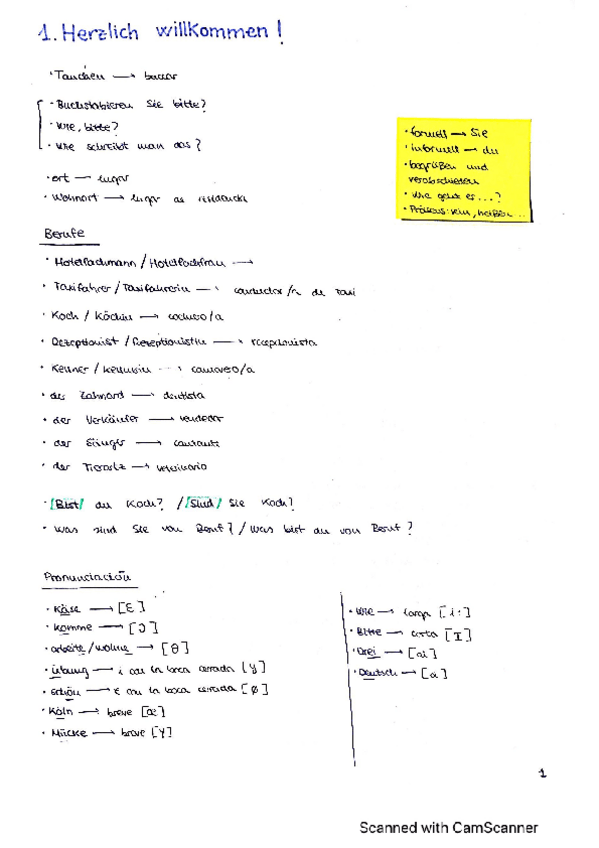 1. Herzlich willkommen!
· Tauchen → bucear
· Buchstabieren Sie bitte?
· Wie, bitte?
· Wie schreibt man das?
· ort → lugar
· Wohnort → lugar de residencia
· formell → Sie
· informell → du
· begrüßen und
verabschieden
· Wie geht es...?
· Präsens: sein, heißen...
Berufe
· Hotelfachmann / Hotelfachfrau →
· Taxifahrer / Taxifahrerin → conductor/a de taxi
· Koch / Köchin → cocinero/a
· Rezeptionist / Rezeptionistin → recepcionista
· Kellner / Kellnerin → camarero/a
· der Zahnard → dentista
· der Verkäufer → vendedor
· der Sänger → cantante
· der Tierarzt → veterinario
· /Bist/ du Koch? / /Sind/ Sie Koch?
· Was sind Sie von Beruf? / Was bist du von Beruf?
Pronunciación
· Käse → [Ɛ]
· Komme → [Ɔ]
· arbeite / wohne → [θ]
· Übung → i con la boca cerrada [y]
· schön → e con la boca cerrada [ø]
· Köln → breve [œ]
· Mücke → breve [Y]
· Wie → larga [i:]
· Bitte → corta [I]
· Drei → [ai]
· Deutsch → [a]
1
Scanned with CamScanner